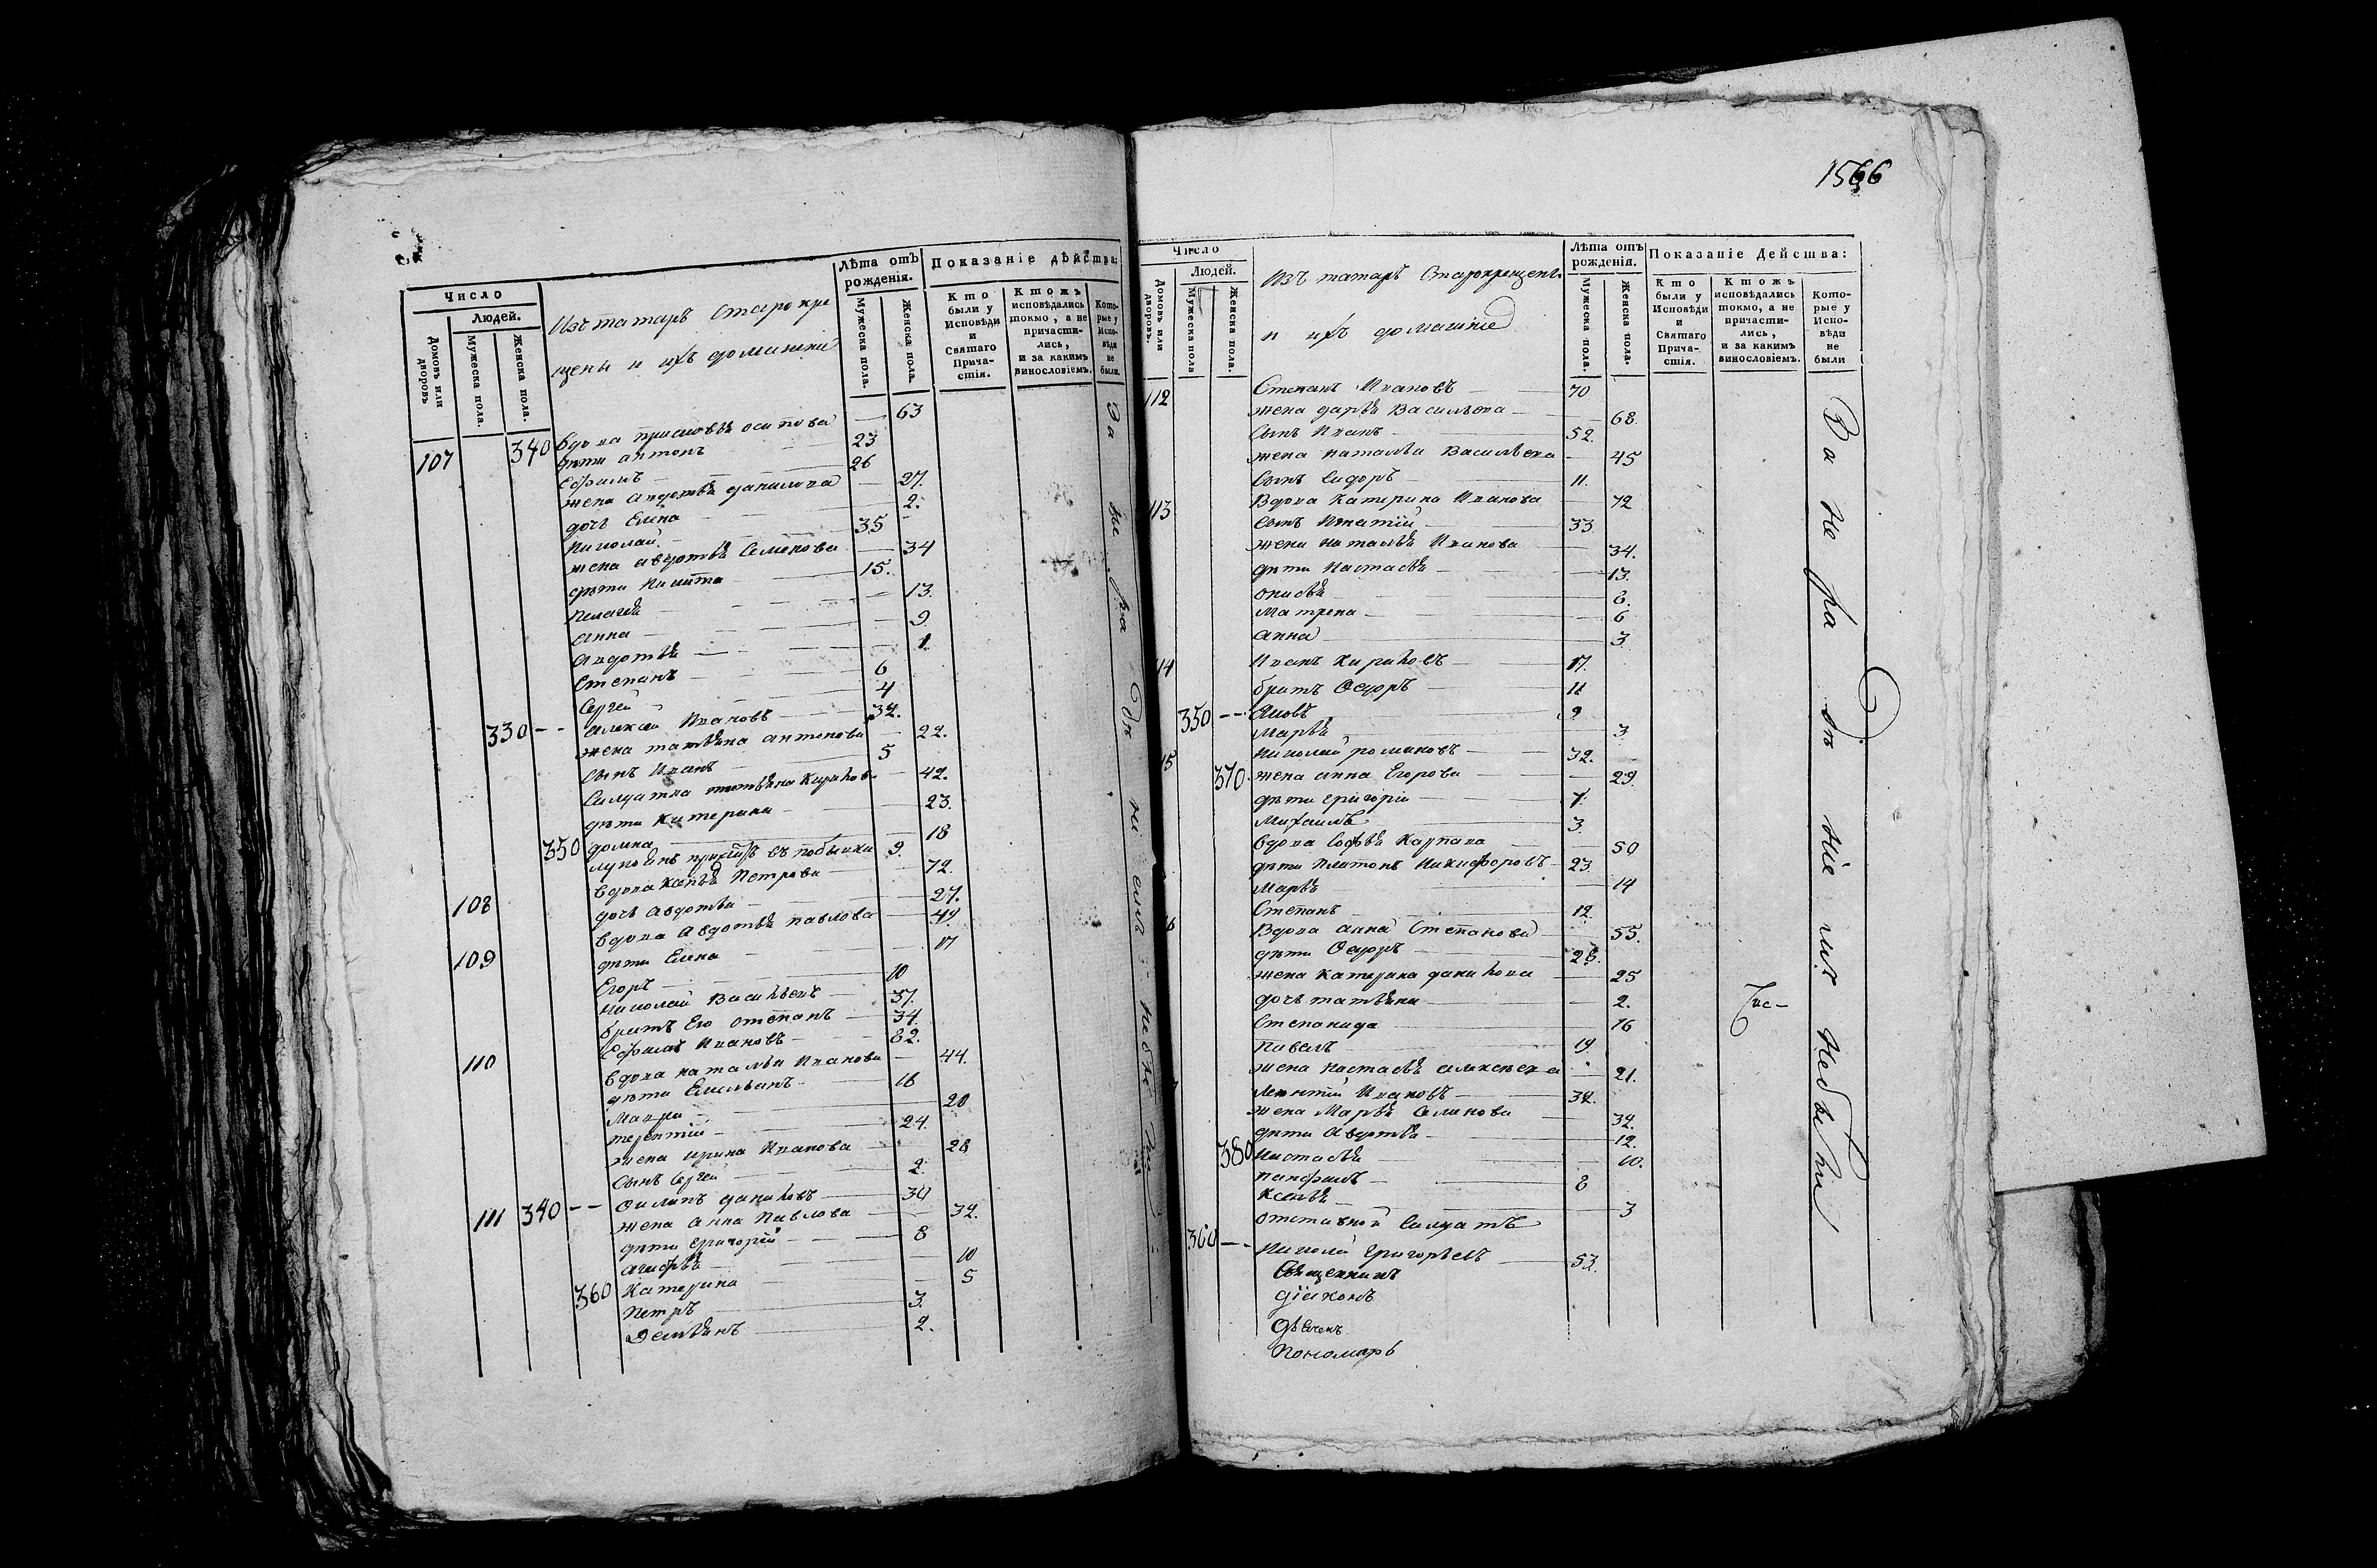 Число
Людей.
Домовъ или дворовъ
Мужеска пола.
Женска пола.
Изъ татаръ старокре
щены и ихъ домашніи
Лѣта отъ рожденія.
Мужеска пола.
Женска пола.
Показаніе дѣйства:
Кто были у Исповѣди и Святаго Причастія.
Ктожъ исповѣдались токмо, а не причастились, и за какимъ винословіемъ.
Которые у Исповѣди не были.
107 340 вдова осипова 63
дѣти антонъ 23
Ефимъ 26
жена авдотья данилова 27.
дочь Елена 2.
николай 35
жена авдотья Семенова 34
дѣти никита 15.
пелагея 13.
анна 9
авдотья 1.
Степанъ 6
Сергей 4
330 -- алексей Ивановъ 32.
жена татьяна антонова 22.
сынъ Иванъ 5
Салдатка татьяна 42.
дѣти катерина 23.
350 домна 18
9.
108 вдова Петрова 72.
дочь авдотья 27.
109 вдова авдотья павлова 49.
дѣти Елена 17
Егоръ 10
николай Васильевъ 37.
братъ Его степанъ 34.
110 Ефимъ Ивановъ 62.
вдова наталья Иванова 44.
дѣти Емельянъ 18
20
терентій 24.
жена ирина Иванова 28
сынъ Сергей 2.
111 340 -- Филипъ даниловъ 34
жена анна Павлова 32.
дѣти григорій 8
агафья 10
360 катерина 5
Петръ 3.
Демьянъ 2.
1566
Число
Людей.
Домовъ или дворовъ.
Мужеска пола
Женска пола.
Изъ татаръ Старокрещены
и ихъ домашніе
Лѣта отъ рожденія.
Мужеска пола.
Женска пола.
Показаніе Действа:
Кто были у Исповѣди и Святаго Причастія.
Ктожъ исповѣдались токмо, а не причастились, и за какимъ винословіемъ.
Которые у Исповѣди не были
112 Степанъ Ивановъ 70
жена дарья Васильева 68.
сынъ Иванъ 52.
жена наталья Васильева 45
сынъ Сидоръ 11.
113 Вдова катерина Иванова 72
сынъ Игнатій 33
жена наталья Иванова 34.
дѣти настасья 13.
8.
матрена 6
анна 3
114 Иванъ кириловъ 17.
братъ Федоръ 11
350 -- 9
марья 3
115 николай романовъ 32.
370. жена анна Егорова 29.
дѣти григорій 7.
михаилъ 3.
вдова софья карпова 50
дѣти платонъ никифоровъ 23.
марья 14
Степанъ 12.
Вдова анна Степанова 55.
дѣти Федоръ 28.
жена катерина данилова 25
дочь татьяна 2.
Степанида 16
павелъ 19.
жена настасья алексеева 21.
леонтій Ивановъ 32.
жена марья Семенова 32.
дѣти авдотья 12.
380 настасья 10.
панфилъ 8
ксенья 3
отставной салдатъ
360 -- николай григорьевъ 53.
Священникъ
діаконъ
дьячекъ
Пономарь
За не ра дѣ ніе ихъ небыли